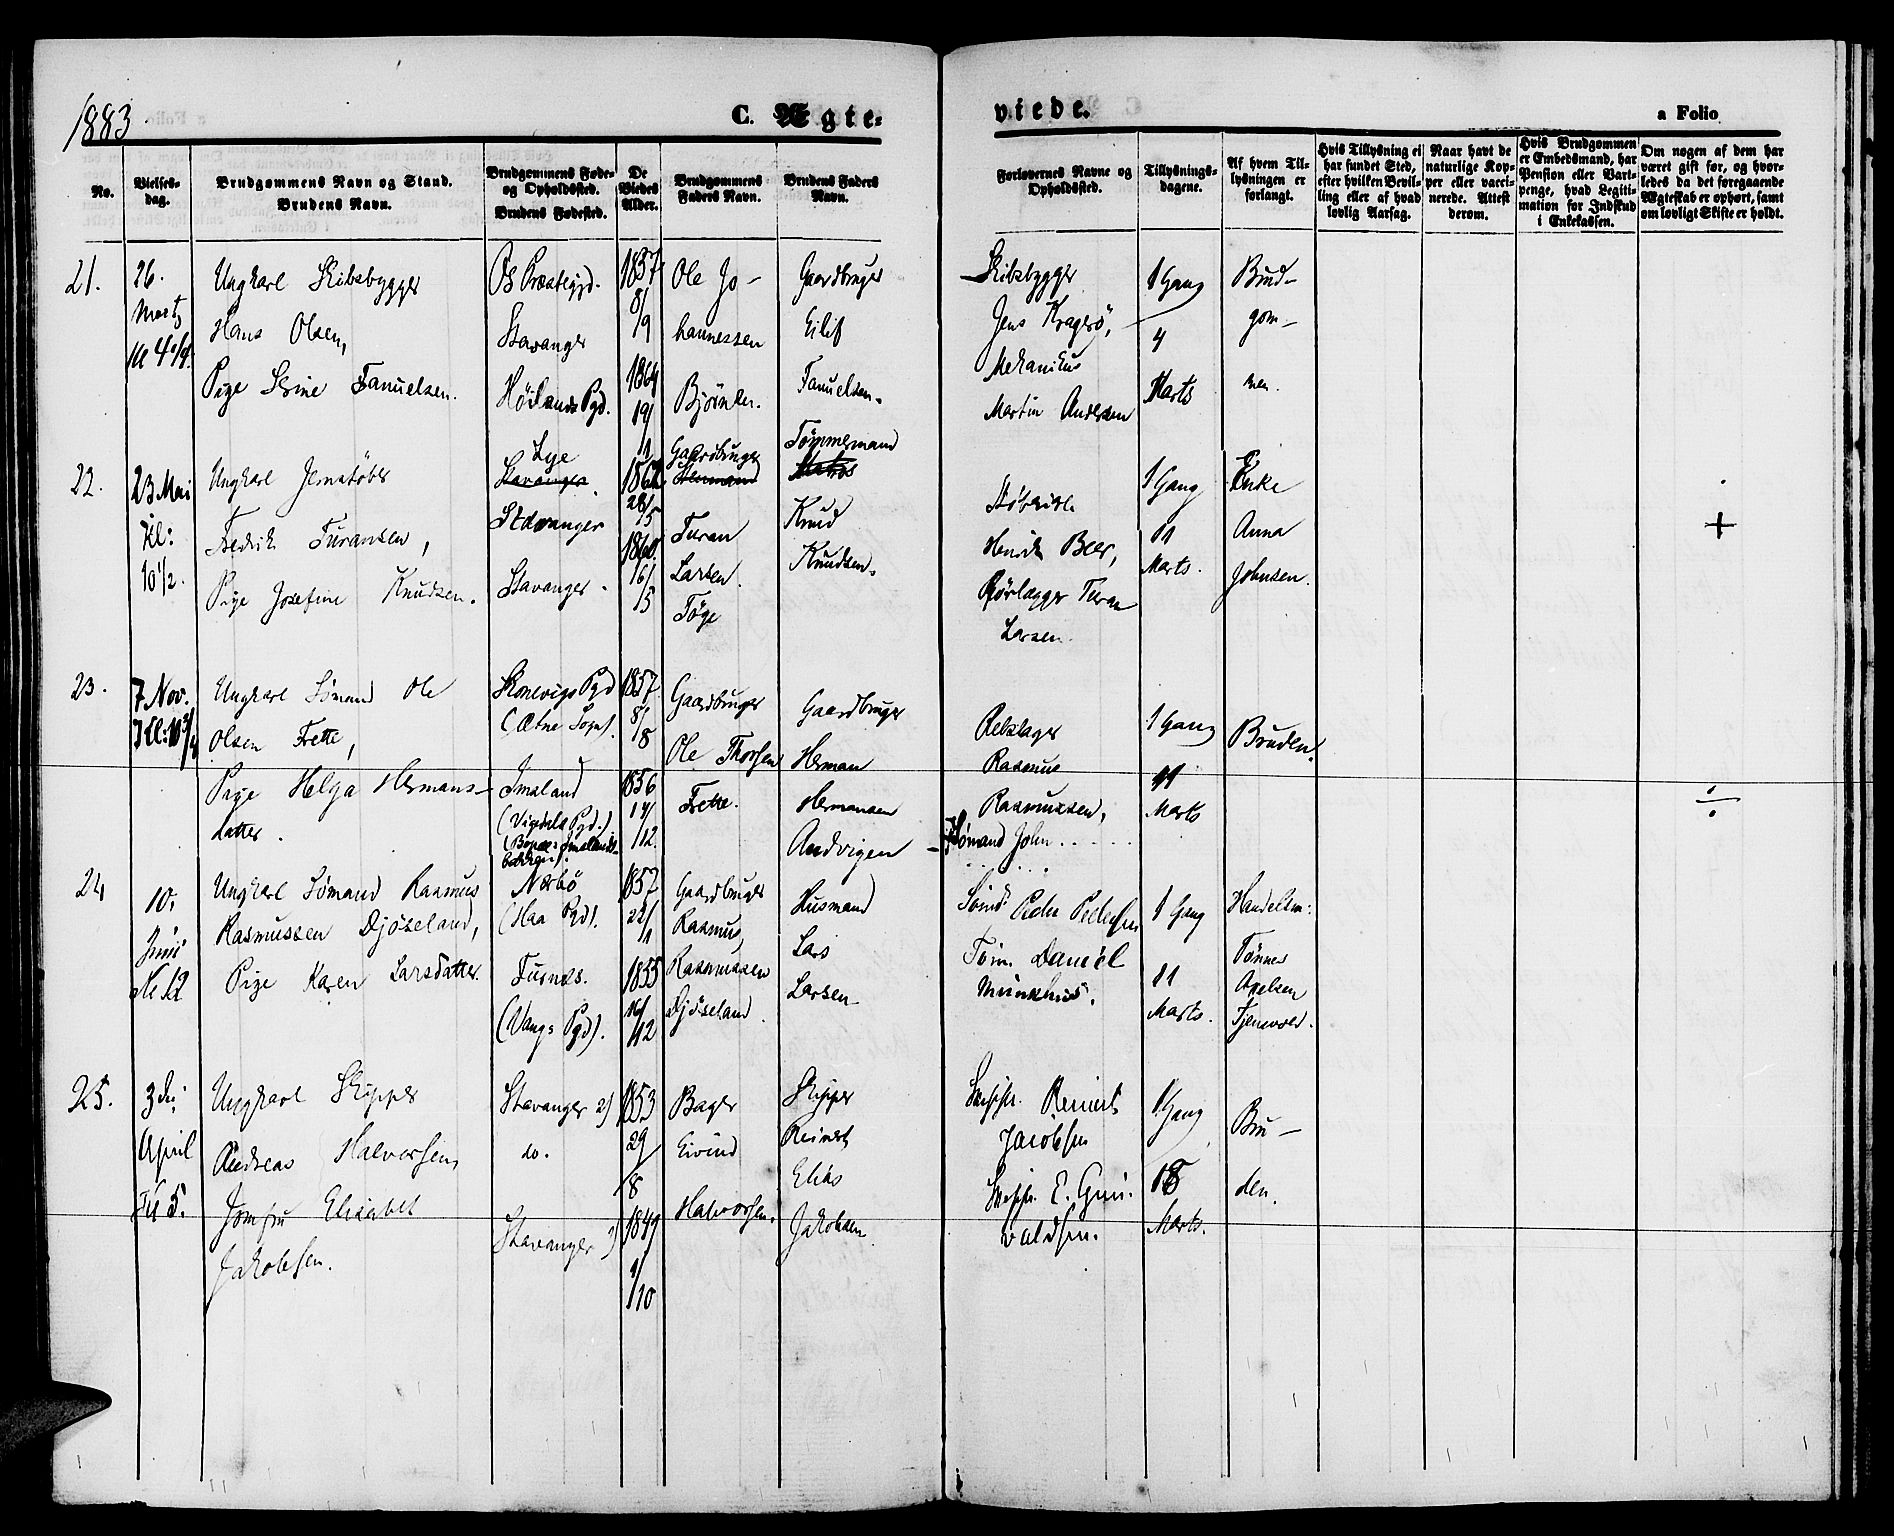 1883
C. Ægte-
viede.
a Folio
No.
Vielses-
dag.
Brudgommens Navn og Stand.
Brudens Navn.
Brudgommens Føde-
og Opholdssted.
Brudens Fødested.
De
Viedes
Alder.
Brudgommens
Faders Navn.
Brudens Faders
Navn.
Forlovernes Navne og
Opholdssted.
Tillysnings-
dagene.
Af hvem Til-
lysningen er
forlangt.
Hvis Tillysning ei
har fundet Sted,
efter hvilken Bevil-
ling eller af hvad
lovlig Aarsag.
Naar havt de
naturlige Kop-
per eller vacci-
nerede. Attest
derom.
Hvis Brudgommen
er Embedsmand, har
Pension eller Vart-
penge, hvad Legiti-
mation for Indskud
i Enkekassen.
Om nogen af dem har
været gift før, og hvor-
ledes da det foregaaende
Ægteskab er ophørt, samt
om lovligt Skifte er holdt.
21.
26.
Marts
Kl 4 1/4.
Ungkarl Skibsbygger
Hans Olsen,
Pige Stine Fanuelsen.
Os Præstegjd.
Stavanger
Höilands Pgd.
1857
8/9
1864
19/1
Ole Jo-
hannessen
Björnen.
Gaardbruger
Eilif
Fanuelsen.
Skibsbygger
Jens Kragerö,
Mekanikus
Martin Andersen
1 Gang
4
Marts
Brud-
gom-
men.
22.
23 Mai
Kl:
10 1/2.
Ungkarl Jernstöber
Fredrik Turansen,
Pige Josefine Knudsen.
Lye
Stavanger.
Stavanger
Stavanger.
1862
28/5
1860.
16/5
Gaardbruger
Turan
Larsen.
Töge
Tömmermand
Matros
Knud
Knudsen.
Henrik Beer,
Rörlægger Turan
Larsen.
1 Gang
11
Marts.
Enke
Anna
Johnsen.
+
23.
7 Nov.
Kl: 10 3/4
Ungkarl Sömand Ole
Olsen Frette,
Pige Helga Hermans-
datter.
Skonevigs Pgd
(Ætne Sogn).
Imsland
(Vigedals Pgd.)
1857.
8/8
1856
14/12.
Gaardbruger
Ole Thorsen
Frette.
Gaardbruger
Herman
Hermansen
Andvigen
Rebslager
Rasmus
Rasmussen,
Sömand John . . . . . .
1 Gang
11
Marts
Bruden.
÷
24
10.
Juni
Kl 12
Ungkarl Sömand Rasmus
Rasmussen Djöseland,
Pige Karen Larsdatter.
Nærbö
(Haa Pgd).
Furnes.
(Vangs Pgd).
1857
22/1
1855
16/12
Gaardbruger
Rasmus,
Rasmussen
Djöseland.
Husmand
Lars
Larsen
Sömd Peder Pedersen
Töm. Daniel
Munkhus.
1 Gang
11
Marts.
Handelsm:
Tönnes
Axelsen
Tjensvold.
25.
3die
April
Kl 5.
Ungkarl Skipper
Andreas Halvorsen,
Jomfru Elisabet
Jakobsen.
Stavanger 2)
do.
Stavanger
1853
29/8
1849
1/10
Bager
Eivind
Halvorsen.
Skipper
Reinert
Elias
Jakobsen.
Skippr. Reinert
Jacobsen
Skippr. E. Gun-
valdsen.
1 Gang
18
Marts.
Bru-
den.